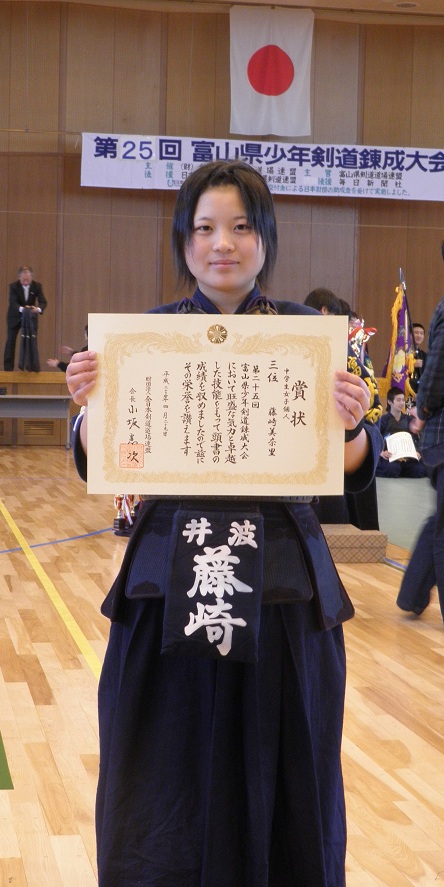 第25回 富山県少年剣道錬成大会
主催 (財)
主管 富山県剣道道場連盟
後援
後援 毎日新聞社
賞状
中学生女子個人
三位 藤崎美奈里
第二十五回
富山県少年剣道錬成大会
において旺盛な気力と卓越
した技能をもって頭書の
成績を収めましたので茲に
その栄誉を讃えます
平成二十年四月二十九日
財団法人全日本剣道道場連盟
会長
井波
藤崎